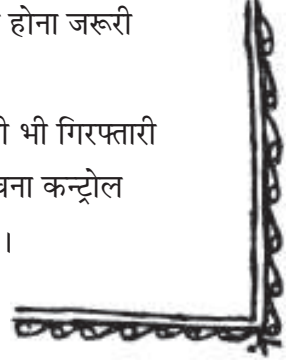 होना जरूरी
भी गिरफ्तारी
कन्ट्रोल
।